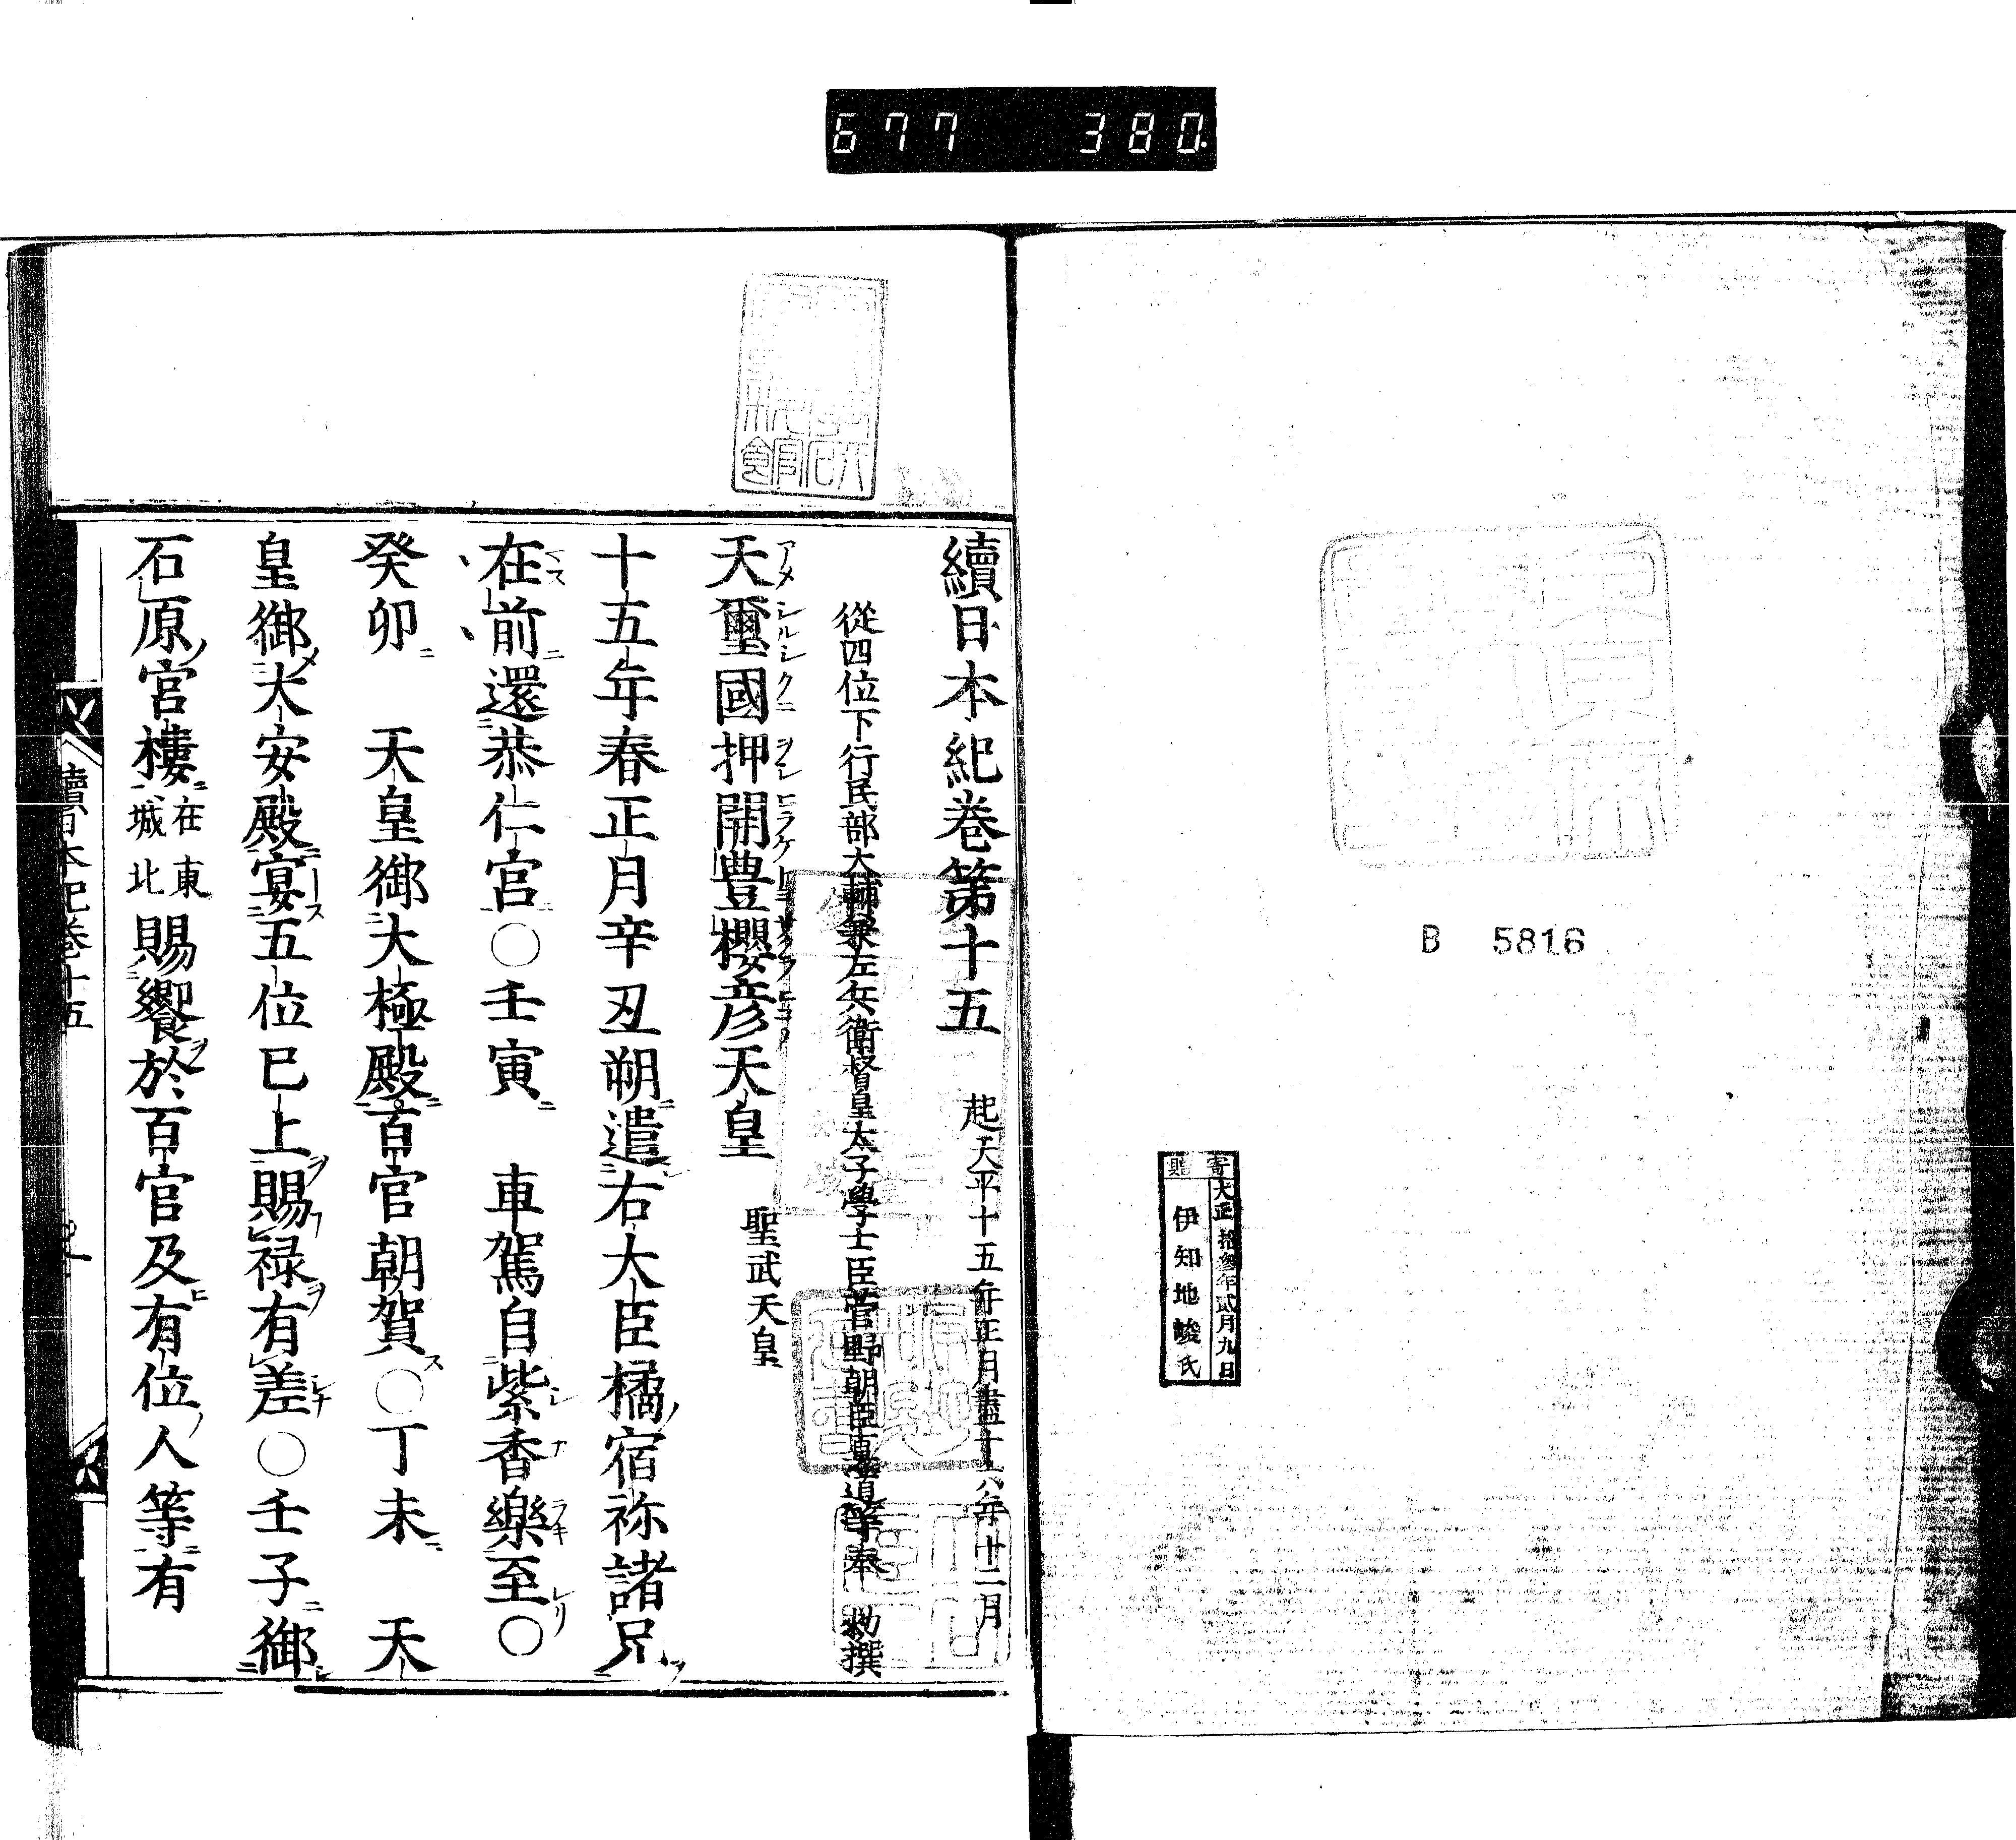 677 380
B 5816
寄贈
大正拾參年貳月九日
伊知地峻氏
續日本紀卷第十五 起天平十五年正月盡十六年十二月
從四位下行民部大輔兼左兵衛督皇太子學士臣菅野朝臣眞道等奉 勅撰
天璽國押開豊櫻彦天皇 聖武天皇
十五年春正月辛丑朔遣右大臣橘宿祢諸兄
在前還恭仁宮○壬寅 車駕自紫香樂至○
癸卯 天皇御大極殿百官朝賀○丁未 天
皇御大安殿宴五位已上賜禄有差○壬子御
石原宮樓在東城北賜饗於百官及有位人等有
續日本紀卷十五